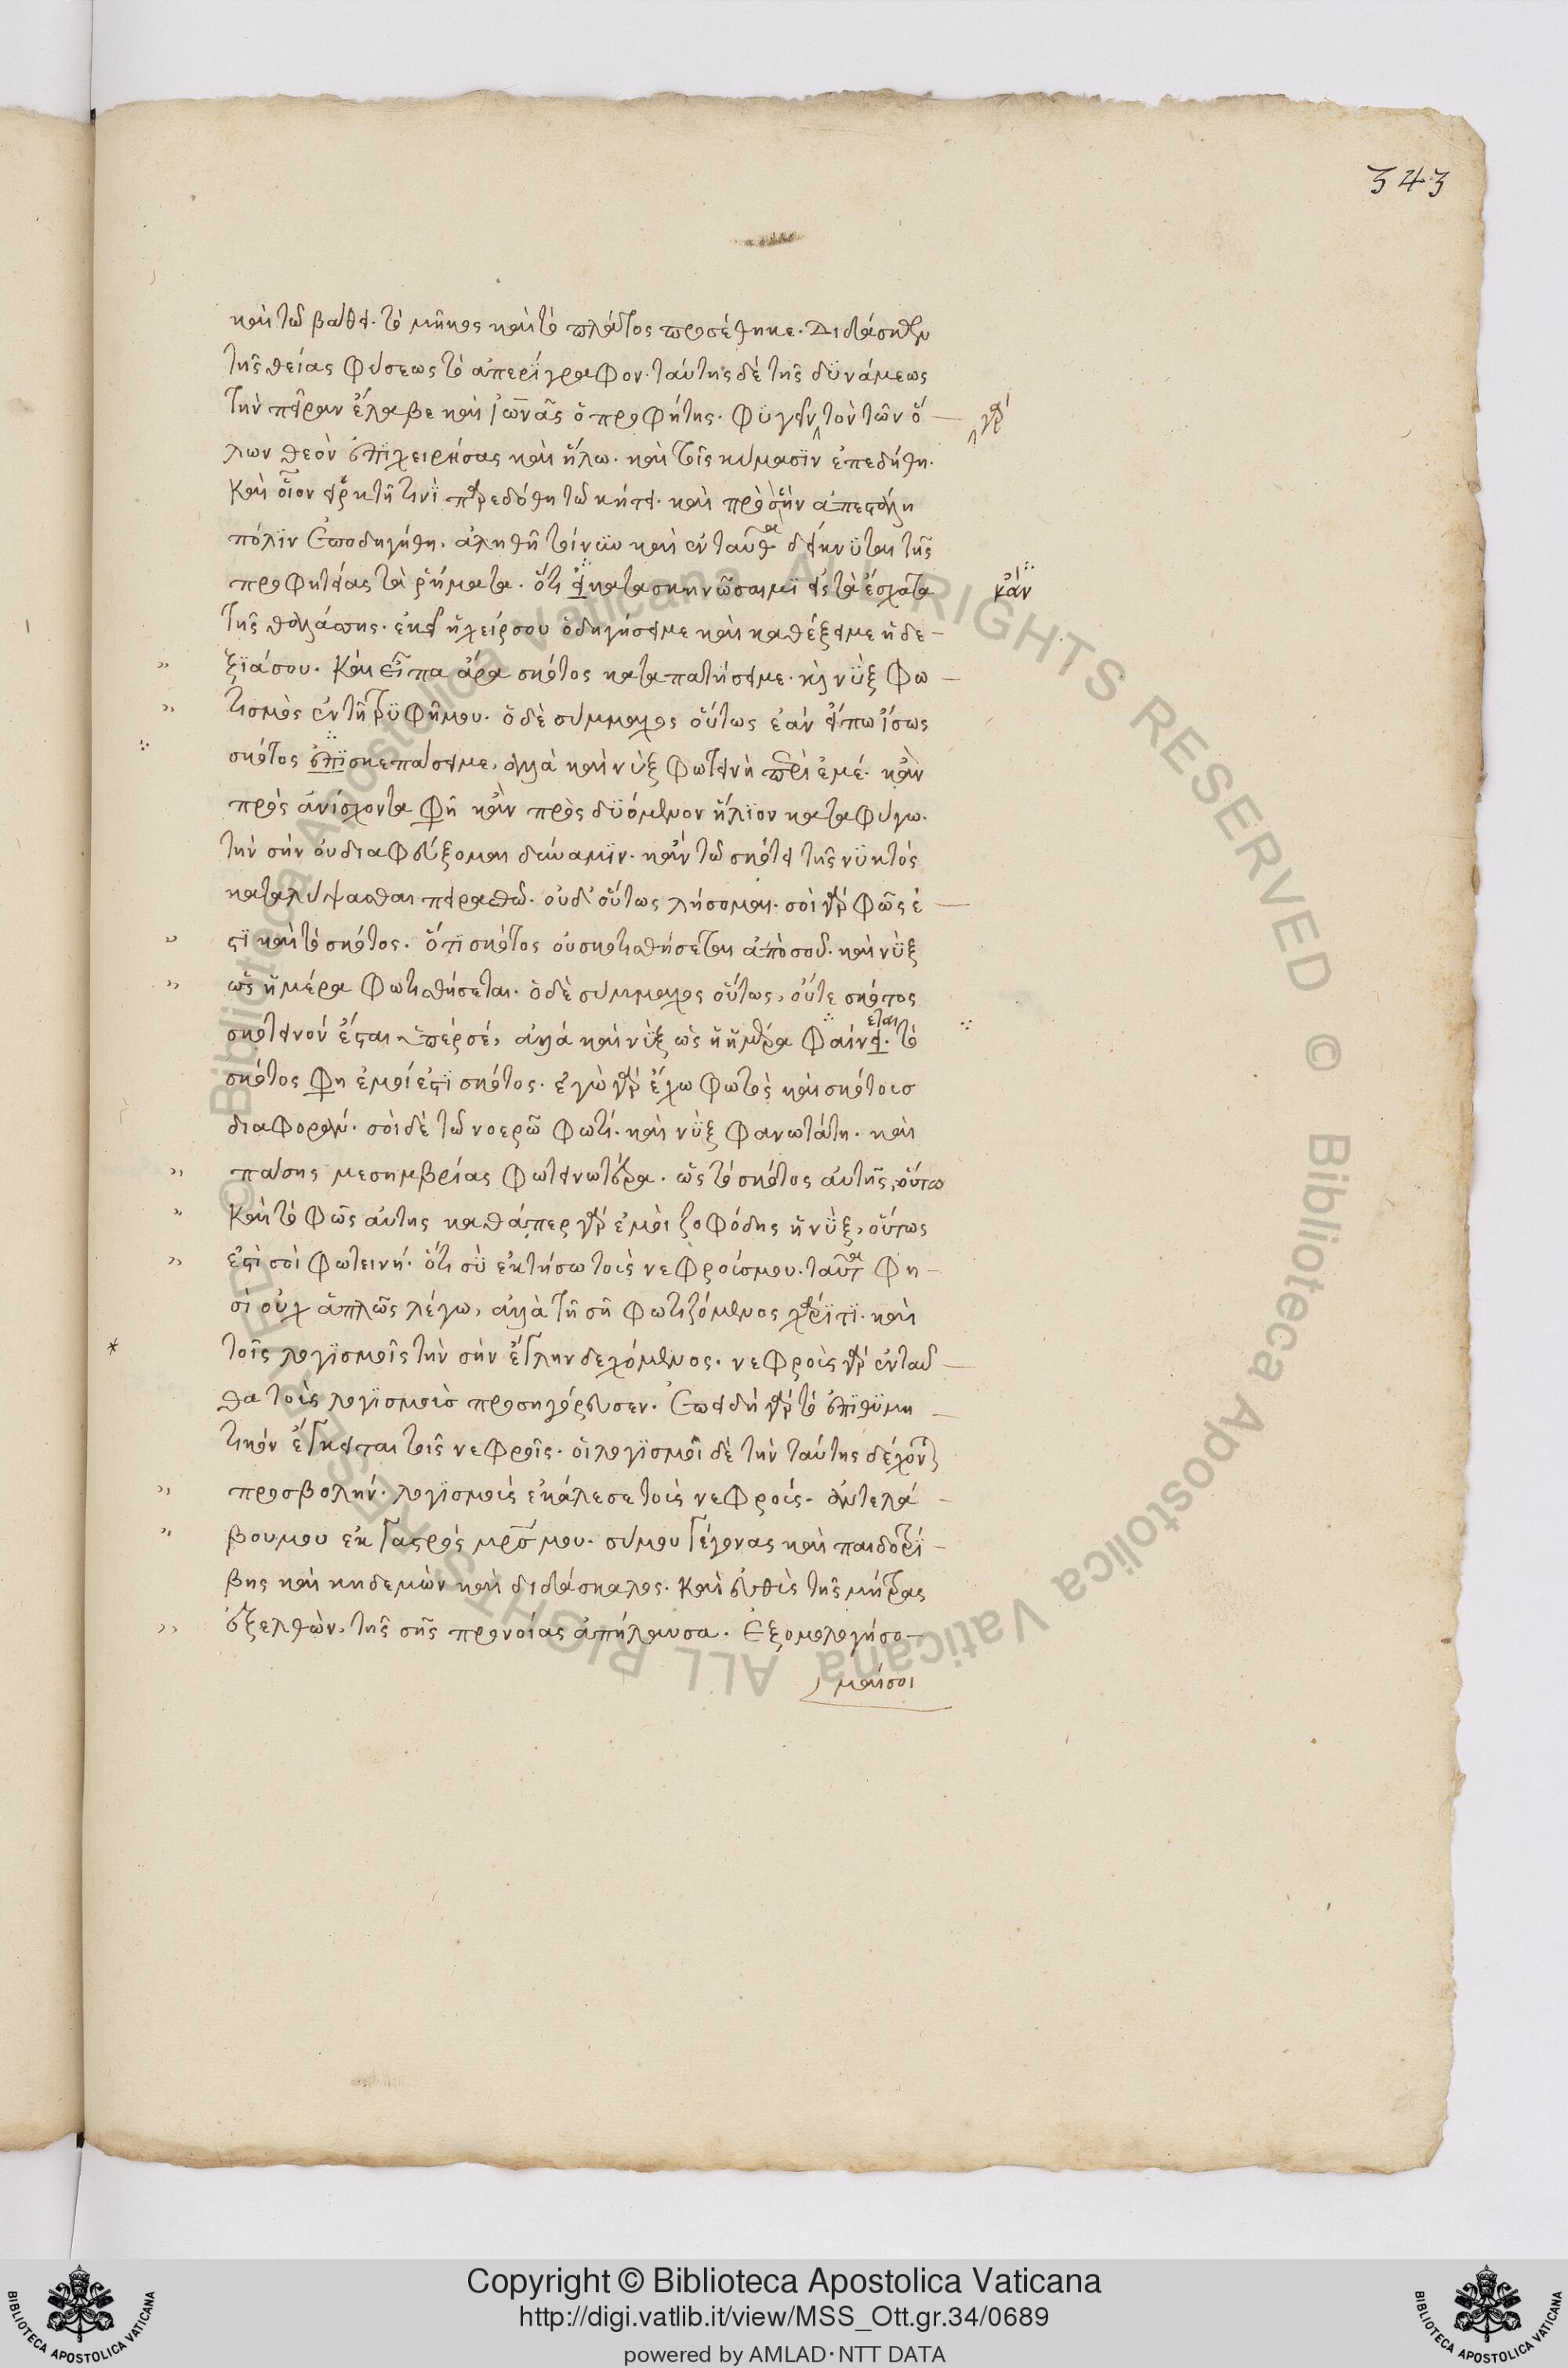 343
καὶ τῶ βάθει. τὸ μῆκος καὶ τὸ πλάτος προσέθηκε. Διδάσκων
τῆς θείας φύσεως τὸ ἀπερίγραφον. ταύτης δὲ τῆς δυνάμεως
τὴν πεῖραν ἔλαβε καὶ ἰωνᾶς ὁ προφήτης. φυγεῖν τὸν τῶν ὅ
γὰρ
λων θεὸν ἐπιχειρήσας καὶ ἥλω. καὶ τοῖς κύμασιν ἐπεδήθη.
Καὶ οἷον εἱρκτῆ τινὶ παρεδόθη τῶ κήτει. καὶ πρὸς ἣν ἀπεστάλη
πόλιν ἐποδηγήθη. ἀληθῆ τοίνυν καὶ ἐνταῦθα δείκνυται τῆς
προφητείας τὰ ῥήματα. ὅτι εἰ κατασκηνώσαιμι εἰς τὰ ἔσχατα
κἂν
τῆς θαλάσσης. ἐκεῖ ἡ χείρ σου ὁδηγήσει με καὶ καθέξει με ἡ δε
ξιά σου. Καὶ εἶπα ἄρα σκότος καταπατήσει με. καὶ νὺξ φω
τισμὸς ἐν τῆ τρυφῆ μου. ὁ δὲ σύμμαχος οὕτως ἐὰν εἴπω ἴσως
σκότος ἐπισκεπάσει με, ἀλλὰ καὶ νὺξ φωτεινὴ περὶ ἐμέ. κἂν
πρὸς ἀνίσχοντα φῆ κἂν πρὸς δυόμενον ἥλιον καταφύγω.
τὴν σὴν οὐ διαφεύξομαι δύναμιν. κἂν τῶ σκότει τῆς νυκτός
καλύψασθαι πειραθῶ. οὐδ' οὕτως λήσομαι. σοὶ γὰρ φῶς ἐ
στὶ καὶ τὸ σκότος. ὅτι σκότος οὐ σκοτισθήσεται ἀπὸ σοῦ. καὶ νὺξ
ὡς ἡμέρα φωτισθήσεται. ὁ δὲ σύμμαχος οὕτως, οὔτε σκότος
σκοτεινόν ἔσται ὑπέρ σέ, ἀλλὰ καὶ νὺξ ὡς ἡ ἡμέρα φαίνει. τὸ
εται
σκότος φη ἐμοί ἐστι σκότος. ἐγὼ γὰρ ἔχω φωτὸς καὶ σκότους
διαφοράν. σοὶ δὲ τῶ νοερῶ φωτί. καὶ νὺξ φανωτάτη. καὶ
πάσης μεσημβρίας φωτεινωτέρα. ὡς τὸ σκότος αὐτῆς, οὕτω
Καὶ τὸ φῶς αὐτης καθάπερ γὰρ ἐμοὶ ζοφόδης ἡ νὺξ, οὕτως
ἐστὶ σοὶ φωτεινή. ὅτι σὺ ἐκτήσω τοὺς νεφρούς μου. ταῦτα φη
σὶ οὐχ ἁπλῶς λέγω, ἀλλὰ τῆ σῆ φωτιζόμενος χάριτι. καὶ
τοῖς λογισμοῖς τὴν σὴν αἴγλην δεχόμενος. νεφροὺς γὰρ ἐνταῦ
θα τοὺς λογισμοὺς προσηγόρευσεν. Ἐπειδὴ γὰρ τὸ ἐπιθυμη
τικόν ἔγκειται τοῖς νεφροῖς. οἱ λογισμοὶ δὲ τὴν ταύτης δέχονται
προσβολήν. λογισμοὺς ἐκάλεσε τοὺς νεφρούς. ἀντελά
βου μου ἐκ γαστρὸς μρς μου. σύ μου γέγονας καὶ παιδοτρί
βης καὶ κηδεμὼν καὶ διδάσκαλος. καὶ εὐθὺς τῆς μήτρας
ἐξελθὼν, τῆς σῆς προνοίας ἀπήλαυσα. Ἐξομολογήσο
μαί σοι
Copyright © Biblioteca Apostolica Vaticana
http://digi.vatlib.it/view/MSS_Ott.gr.34/0689
powered by AMLAD·NTT DATA